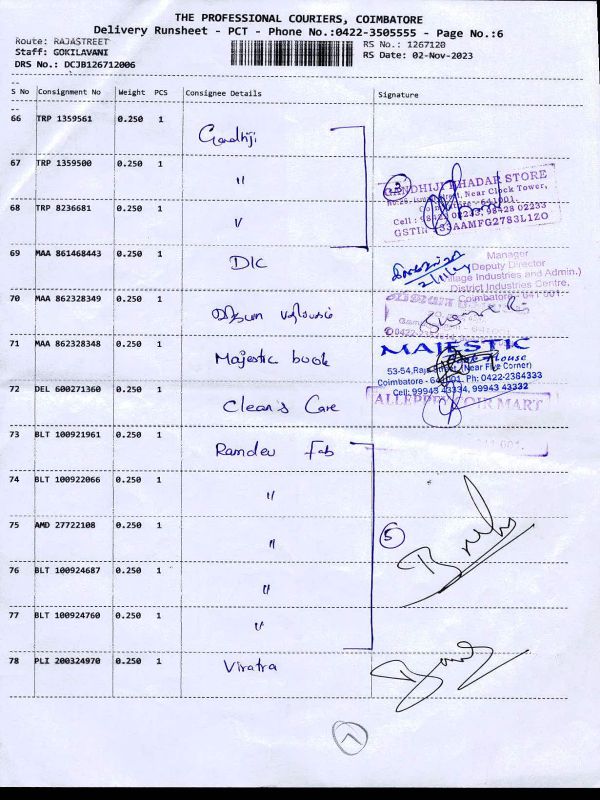 THE PROFESSIONAL COURIERS, COIMBATORE
Delivery Runsheet - PCT - Phone No.:0422-3505555 - Page No.:6
Route: RAJASTREET
RS No.: 1267120
Staff: GOKILAVANI
RS Date: 02-Nov-2023
DRS No.: DCJB126712006
S No Consignment No Weight PCS Consignee Details Signature
66 TRP 1359561 0.250 1 Gandhiji
67 TRP 1359500 0.250 1 "
68 TRP 8236681 0.250 1 "
3
GANDHIJI KHADAR STORE
Near Clock Tower,
98428 02233
GSTIN :33AAMFG2783L1ZO
69 MAA 861468443 0.250 1 DIC
Manager
Deputy Director
(Village Industries and Admin.)
District Industries Centre,
Coimbatore - 641 001.
70 MAA 862328349 0.250 1
71 MAA 862328348 0.250 1 Majestic book
MAJESTIC
Book House
53-54, Raja Street, (Near Five Corner)
Coimbatore - 641 001. Ph: 0422-2384333
Cell: 99943 43334, 99943 43332
72 DEL 600271360 0.250 1 Clean's Care
ALLEPPEY COIR MART
73 BLT 100921961 0.250 1 Ramdev Fab
74 BLT 100922066 0.250 1 "
75 AMD 27722108 0.250 1 "
5
76 BLT 100924687 0.250 1 "
77 BLT 100924760 0.250 1 "
78 PLI 200324970 0.250 1 Viratra